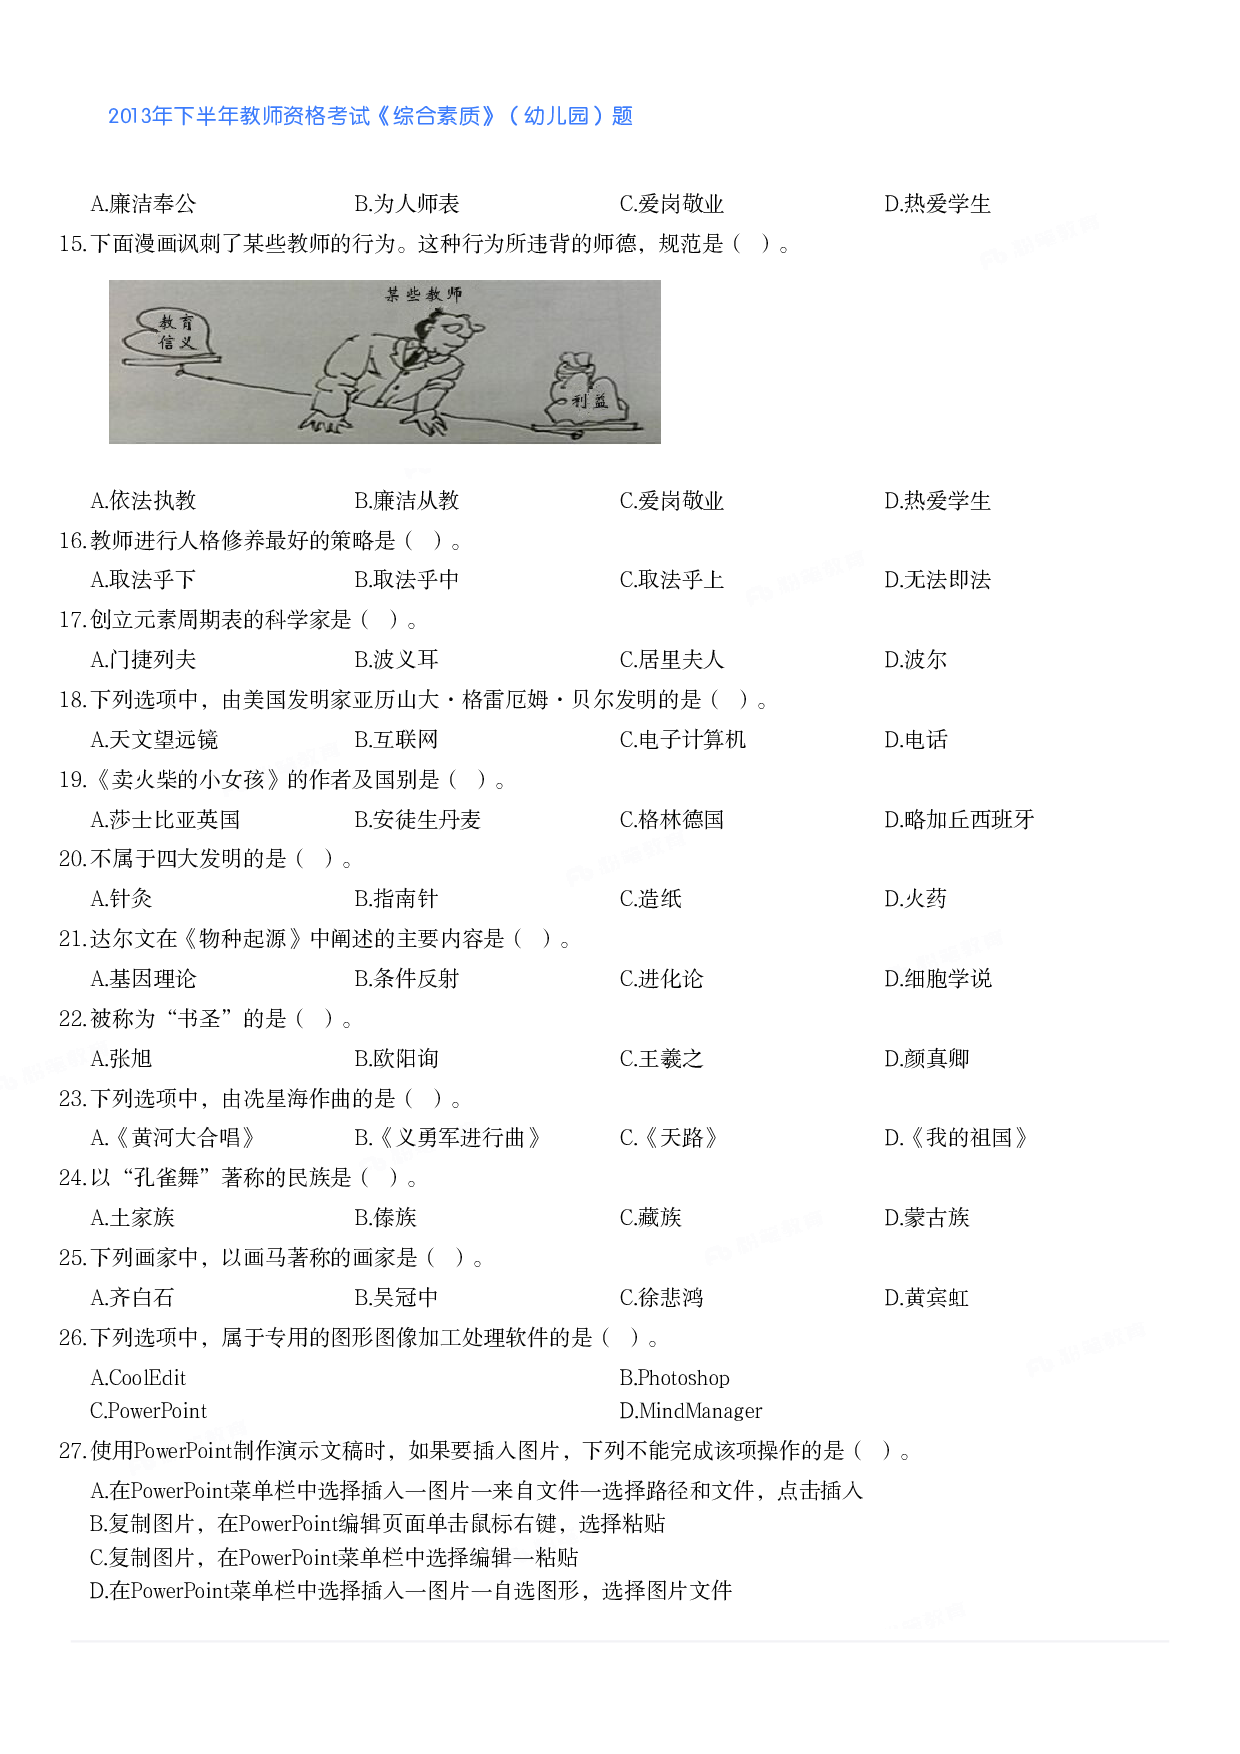 2013年下半年教师资格考试《综合素质》（幼儿园）题
A.廉洁奉公 B.为人师表 C.爱岗敬业 D.热爱学生
15.下面漫画讽刺了某些教师的行为。这种行为所违背的师德，规范是（ ）。
某些教师
教育
信义
利益
A.依法执教 B.廉洁从教 C.爱岗敬业 D.热爱学生
16.教师进行人格修养最好的策略是（ ）。
A.取法乎下 B.取法乎中 C.取法乎上 D.无法即法
17.创立元素周期表的科学家是（ ）。
A.门捷列夫 B.波义耳 C.居里夫人 D.波尔
18.下列选项中，由美国发明家亚历山大·格雷厄姆·贝尔发明的是（ ）。
A.天文望远镜 B.互联网 C.电子计算机 D.电话
19.《卖火柴的小女孩》的作者及国别是（ ）。
A.莎士比亚英国 B.安徒生丹麦 C.格林德国 D.略加丘西班牙
20.不属于四大发明的是（ ）。
A.针灸 B.指南针 C.造纸 D.火药
21.达尔文在《物种起源》中阐述的主要内容是（ ）。
A.基因理论 B.条件反射 C.进化论 D.细胞学说
22.被称为“书圣”的是（ ）。
A.张旭 B.欧阳询 C.王羲之 D.颜真卿
23.下列选项中，由冼星海作曲的是（ ）。
A.《黄河大合唱》 B.《义勇军进行曲》 C.《天路》 D.《我的祖国》
24.以“孔雀舞”著称的民族是（ ）。
A.土家族 B.傣族 C.藏族 D.蒙古族
25.下列画家中，以画马著称的画家是（ ）。
A.齐白石 B.吴冠中 C.徐悲鸿 D.黄宾虹
26.下列选项中，属于专用的图形图像加工处理软件的是（ ）。
A.CoolEdit B.Photoshop
C.PowerPoint D.MindManager
27.使用PowerPoint制作演示文稿时，如果要插入图片，下列不能完成该项操作的是（ ）。
A.在PowerPoint菜单栏中选择插入一图片一来自文件一选择路径和文件，点击插入
B.复制图片，在PowerPoint编辑页面单击鼠标右键，选择粘贴
C.复制图片，在PowerPoint菜单栏中选择编辑一粘贴
D.在PowerPoint菜单栏中选择插入一图片一自选图形，选择图片文件